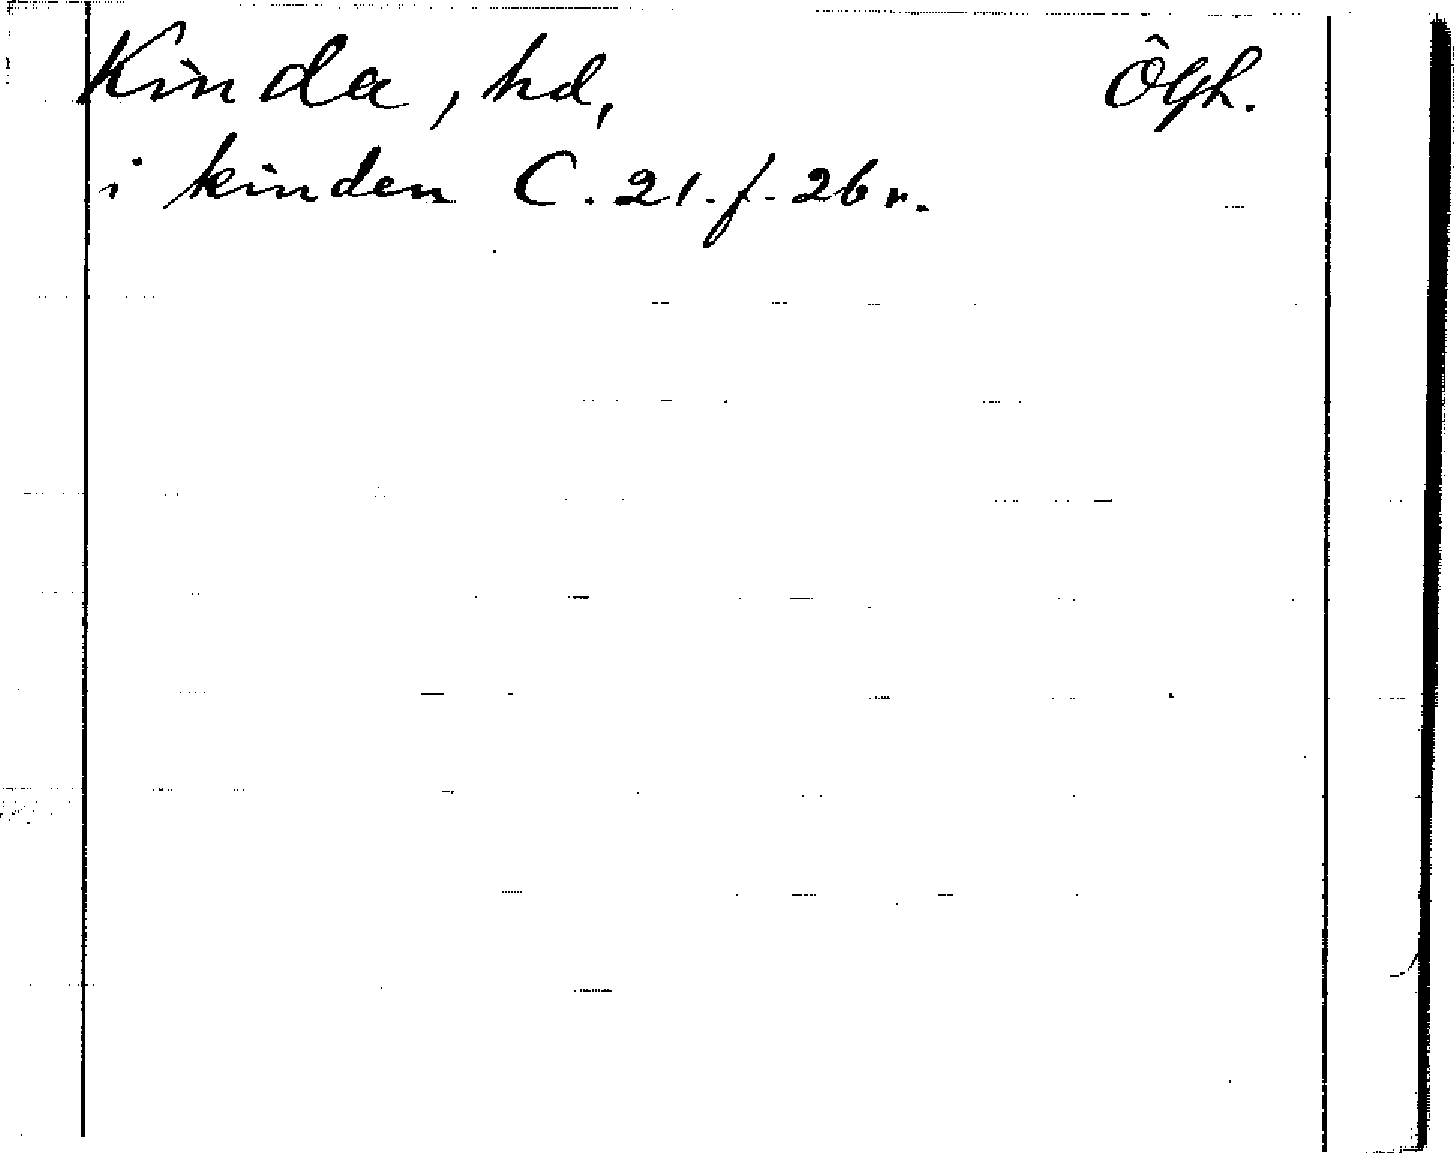 Kinda, hd, Ögh.
i kinden C. 21. f. 26 r.